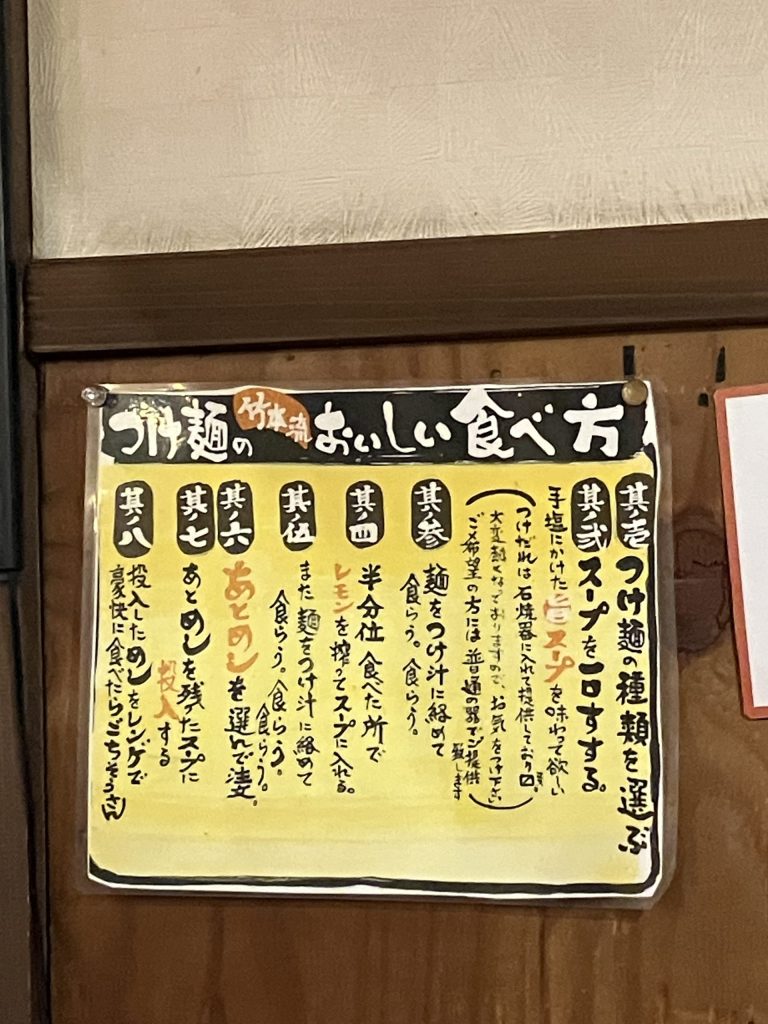 つけ麺の竹本流おいしい食べ方
其ノ壱 つけ麺の種類を選ぶ
其ノ弐 スープを一口すする。
手塩にかけた旨スープを味わって欲しい
(つけだれは石焼器に入れて提供しており〼。
大変熱くなっておりますので、お気をつけ下さい
ご希望の方には普通の器でご提供致します)
其ノ参 麺をつけ汁に絡めて
食らう。食らう。
其ノ四 半分位食べた所で
レモンを搾ってスープに入れる。
其ノ伍 また麺をつけ汁に絡めて
食らう。食らう。食らう。
其ノ六 あとめしを選んで注文。
其ノ七 あとめしを残ったスープに
投入する
其ノ八 投入しためしをレンゲで
豪快に食べたらごちそうさん